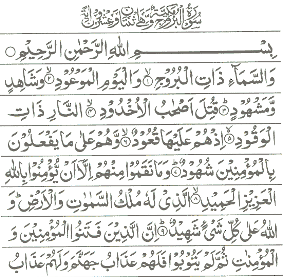 سورة البروج مكية وهي اثنتان وعشرون آية
بسم الله الرحمن الرحيم
وَالسَّمَآءِ ذَاتِ الْبُرُوجِ ۝١ وَالْيَوْمِ الْمَوْعُودِ ۝٢ وَشَاهِدٍ
وَّمَشْهُودٍ ۝٣ قُتِلَ اَصْحٰبُ الْاُخْدُودِ ۝٤ النَّارِ ذَاتِ
الْوَقُودِ ۝٥ اِذْ هُمْ عَلَيْهَا قُعُودٌ ۝٦ وَّهُمْ عَلٰى مَا يَفْعَلُوْنَ
بِالْمُؤْمِنِيْنَ شُهُودٌ ۝٧ وَمَا نَقَمُوْا مِنْهُمْ اِلَّآ اَنْ يُّؤْمِنُوْا بِاللّٰهِ
الْعَزِيْزِ الْحَمِيْدِ ۝٨ الَّذِيْ لَهٗ مُلْكُ السَّمٰوٰتِ وَالْاَرْضِ وَ
اللّٰهُ عَلٰى كُلِّ شَيْءٍ شَهِيْدٌ ۝٩ اِنَّ الَّذِيْنَ فَتَنُوا الْمُؤْمِنِيْنَ وَ
الْمُؤْمِنٰتِ ثُمَّ لَمْ يَتُوْبُوْا فَلَهُمْ عَذَابُ جَهَنَّمَ وَلَهُمْ عَذَابُ